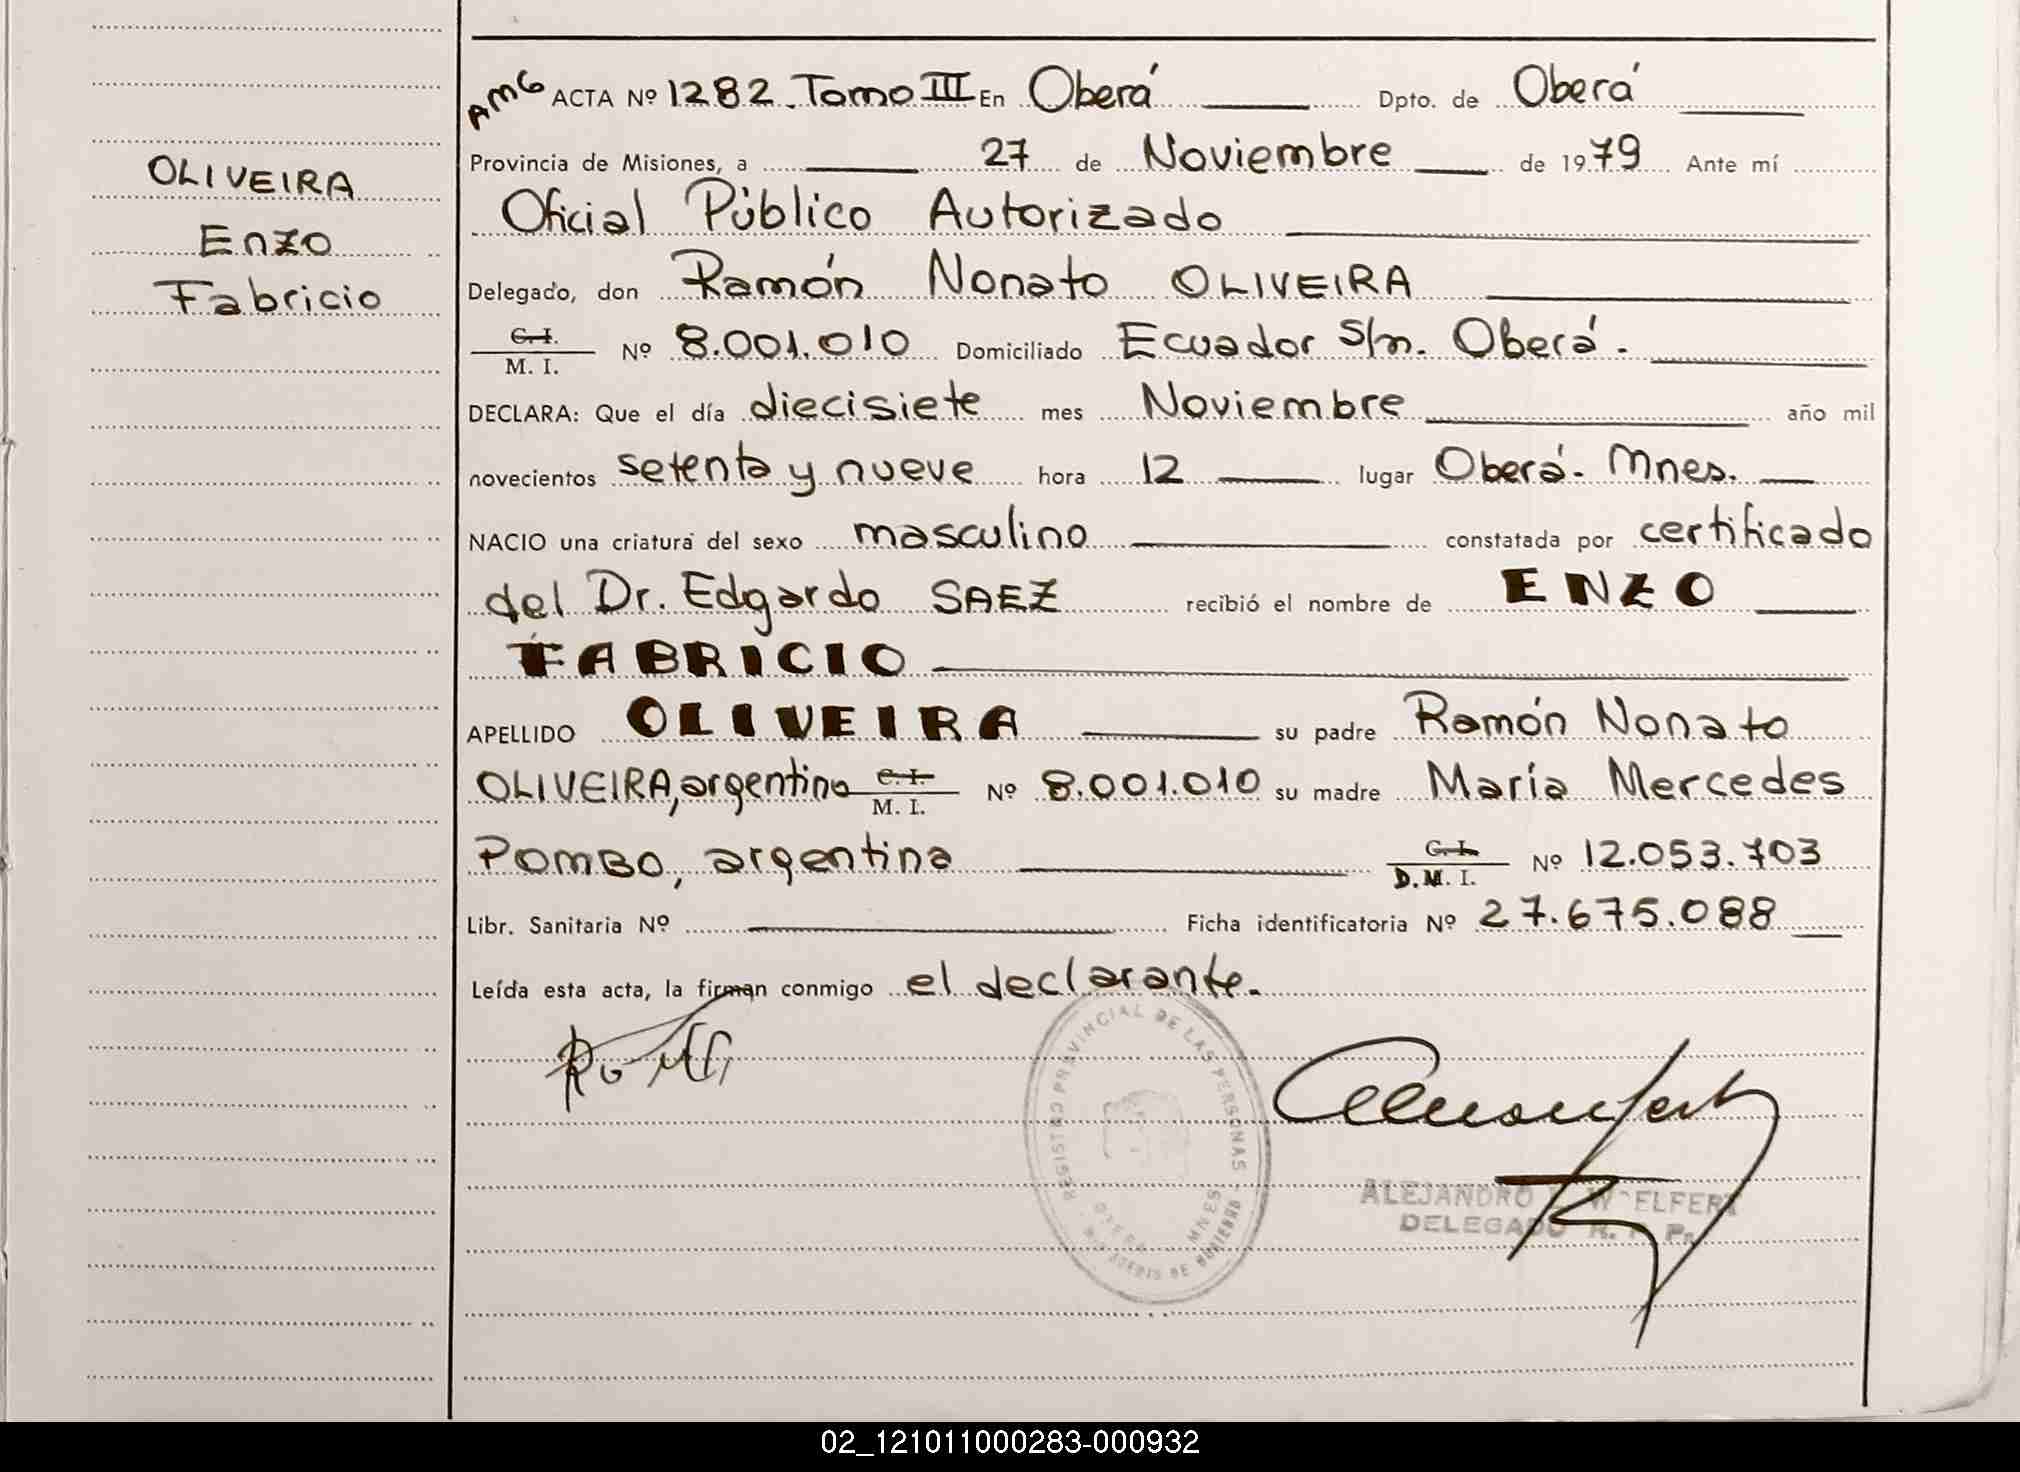 OLIVEIRA
Enzo
Fabricio
AMG ACTA Nº 1282. Tomo III En Oberá Dpto. de Oberá
Provincia de Misiones, a 27 de Noviembre de 1979 Ante mí
Oficial Público Autorizado
Delegado, don Ramón Nonato OLIVEIRA
C.I.
M. I. Nº 8.001.010 Domiciliado Ecuador S/n. Oberá.
DECLARA: Que el día diecisiete mes Noviembre año mil
novecientos setenta y nueve hora 12 lugar Oberá- Mnes.
NACIO una criatura del sexo masculino constatada por certificado
del Dr. Edgardo SAEZ recibió el nombre de ENZO
FABRICIO
APELLIDO OLIVEIRA su padre Ramón Nonato
OLIVEIRA, argentino C.I. M. I. Nº 8.001.010 su madre María Mercedes
POMBO, argentina C.I. D.M.I. Nº 12.053.703
Libr. Sanitaria Nº Ficha identificatoria Nº 27.675.088
Leída esta acta, la firman conmigo el declarante.
REGISTRO PROVINCIAL DE LAS PERSONAS
MNES
ALEJANDRO
DELEGADO
02_121011000283-000932